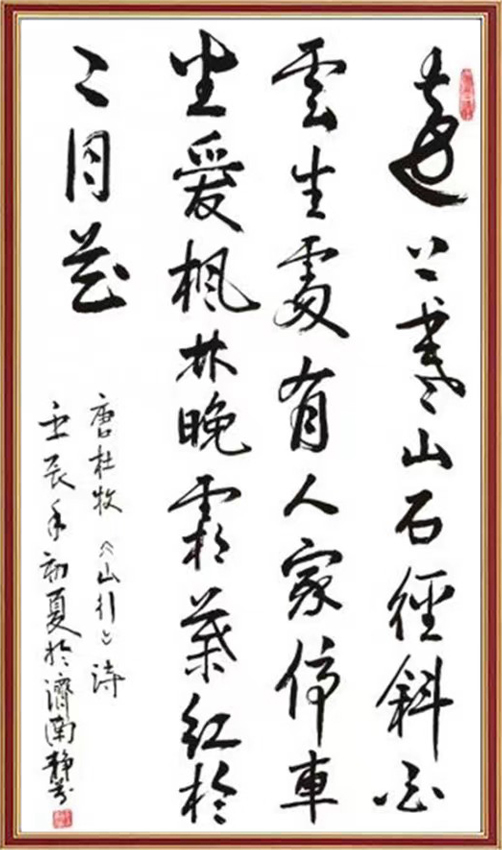 遠上寒山石徑斜白
雲生處有人家停車
坐愛楓林晚霜葉紅於
二月花
唐杜牧《山行》詩
壬辰年初夏於濟南靜芳